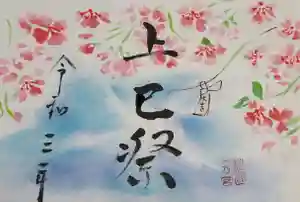 上巳祭
令和三年